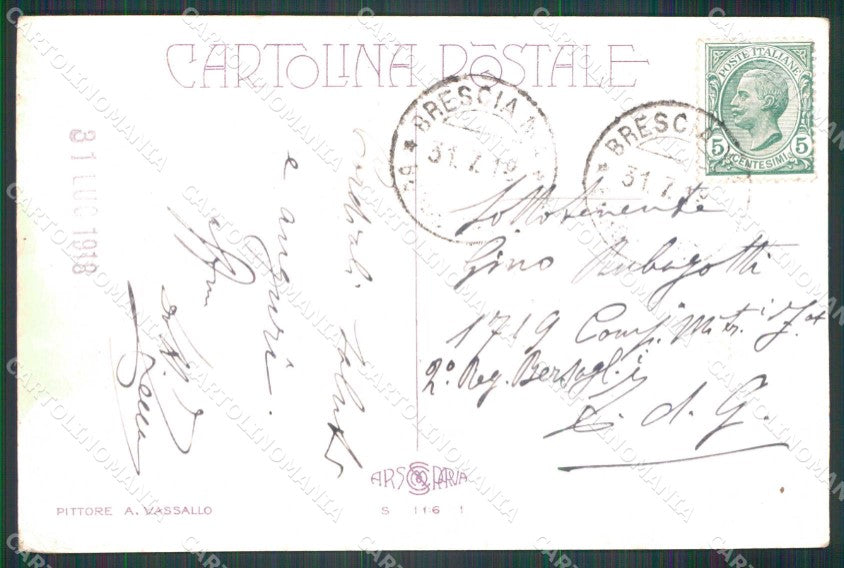 CARTOLINA POSTALE
POSTE ITALIANE
5 5
CENTESIMI
BRESCIA
31.7.18
BRESCIA
31.7.18
31 LUG 1918
Cordiali saluti
e auguri.
Sottotenente
Gino Rubagotti
1719 Comp. Mitr.i Fiat
2º Reg. Bersagl.i
Z. d. G.
ARS PARVA
PITTORE A. VASSALLO
S 116 1
CARTOLINOMANIA